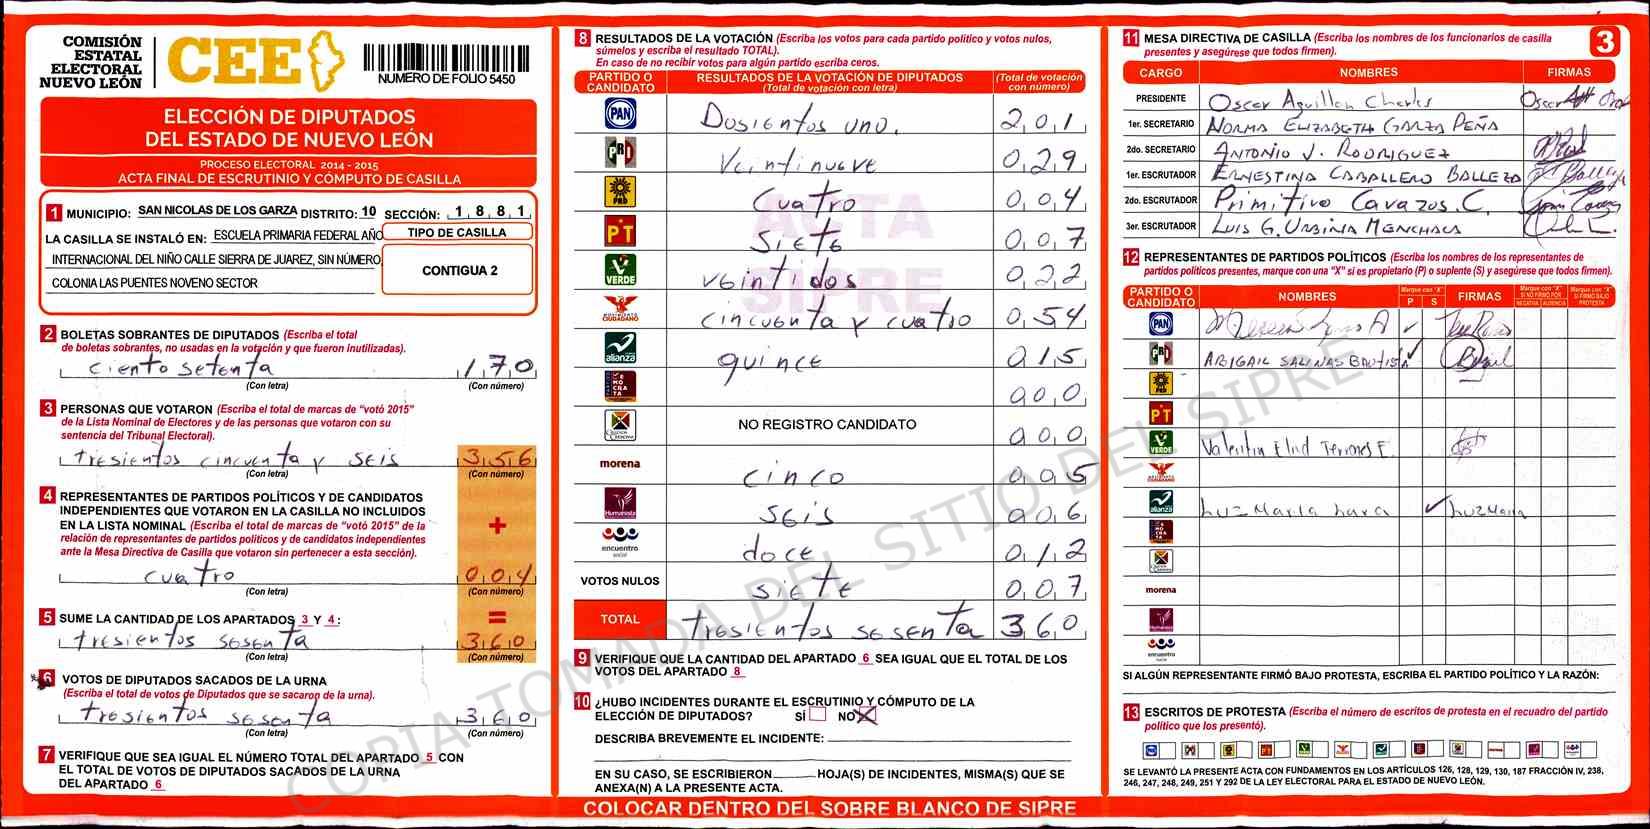 COMISIÓN
ESTATAL
ELECTORAL
NUEVO LEÓN
CEE
NUMERO DE FOLIO 5450
ELECCIÓN DE DIPUTADOS
DEL ESTADO DE NUEVO LEÓN
PROCESO ELECTORAL 2014 - 2015
ACTA FINAL DE ESCRUTINIO Y CÓMPUTO DE CASILLA
1 MUNICIPIO: SAN NICOLAS DE LOS GARZA DISTRITO: 10 SECCIÓN: 1 8 8 1
LA CASILLA SE INSTALÓ EN: ESCUELA PRIMARIA FEDERAL AÑO
INTERNACIONAL DEL NIÑO CALLE SIERRA DE JUAREZ, SIN NÚMERO,
COLONIA LAS PUENTES NOVENO SECTOR
TIPO DE CASILLA
CONTIGUA 2
2 BOLETAS SOBRANTES DE DIPUTADOS (Escriba el total
de boletas sobrantes, no usadas en la votación y que fueron inutilizadas).
ciento setenta 1 7 0
(Con letra) (Con número)
3 PERSONAS QUE VOTARON (Escriba el total de marcas de "votó 2015"
de la Lista Nominal de Electores y de las personas que votaron con su
sentencia del Tribunal Electoral).
tresientos cincuenta y seis 3 5 6
(Con letra) (Con número)
4 REPRESENTANTES DE PARTIDOS POLÍTICOS Y DE CANDIDATOS
INDEPENDIENTES QUE VOTARON EN LA CASILLA NO INCLUIDOS
EN LA LISTA NOMINAL (Escriba el total de marcas de "votó 2015" de la
relación de representantes de partidos políticos y de candidatos independientes
ante la Mesa Directiva de Casilla que votaron sin pertenecer a esta sección).
+
cuatro 0 0 4
(Con letra) (Con número)
=
5 SUME LA CANTIDAD DE LOS APARTADOS 3 Y 4:
tresientos sesenta 3 6 0
(Con letra) (Con número)
6 VOTOS DE DIPUTADOS SACADOS DE LA URNA
(Escriba el total de votos de Diputados que se sacaron de la urna).
tresientos sesenta 3 6 0
(Con letra) (Con número)
7 VERIFIQUE QUE SEA IGUAL EL NÚMERO TOTAL DEL APARTADO 5 CON
EL TOTAL DE VOTOS DE DIPUTADOS SACADOS DE LA URNA
DEL APARTADO 6
8 RESULTADOS DE LA VOTACIÓN (Escriba los votos para cada partido político y votos nulos,
súmelos y escriba el resultado TOTAL).
En caso de no recibir votos para algún partido escriba ceros.
PARTIDO O CANDIDATO RESULTADOS DE LA VOTACIÓN DE DIPUTADOS (Total de votación con letra) (Total de votación con número)
PAN Dosientos uno. 2 0 1
PRD Veintinueve 0 2 9
PRD cuatro 0 0 4
PT siete 0 0 7
VERDE veintidos 0 2 2
MOVIMIENTO CIUDADANO cincuenta y cuatro 0 5 4
alianza quince 0 1 5
DEMOCRATA 0 0 0
CRUZADA CIUDADANA NO REGISTRO CANDIDATO 0 0 0
morena cinco 0 0 5
Humanista seis 0 0 6
encuentro social doce 0 1 2
VOTOS NULOS siete 0 0 7
TOTAL tresientos sesenta 3 6 0
ACTA
SIPRE
9 VERIFIQUE QUE LA CANTIDAD DEL APARTADO 6 SEA IGUAL QUE EL TOTAL DE LOS
VOTOS DEL APARTADO 8
10 ¿HUBO INCIDENTES DURANTE EL ESCRUTINIO Y CÓMPUTO DE LA
ELECCIÓN DE DIPUTADOS? SÍ NO X
DESCRIBA BREVEMENTE EL INCIDENTE:
EN SU CASO, SE ESCRIBIERON HOJA(S) DE INCIDENTES, MISMA(S) QUE SE
ANEXA(N) A LA PRESENTE ACTA.
COLOCAR DENTRO DEL SOBRE BLANCO DE SIPRE
11 MESA DIRECTIVA DE CASILLA (Escriba los nombres de los funcionarios de casilla
presentes y asegúrese que todos firmen).
3
CARGO NOMBRES FIRMAS
PRESIDENTE Oscar Aguillon Charles
1er. SECRETARIO NORMA ELIZABETH GARZA PEÑA
2do. SECRETARIO ANTONIO J. RODRIGUEZ
1er. ESCRUTADOR ERNESTINA CABALLERO BALLEZA
2do. ESCRUTADOR Primitivo Cavazos. C.
3er. ESCRUTADOR LUIS G. URBINA MENCHACA
12 REPRESENTANTES DE PARTIDOS POLÍTICOS (Escriba los nombres de los representantes de
partidos políticos presentes, marque con una "X" si es propietario (P) o suplente (S) y asegúrese que todos firmen).
PARTIDO O CANDIDATO NOMBRES Marque con "X" P S FIRMAS Marque con "X" SI NO FIRMÓ POR NEGATIVA AUSENCIA Marque con "X" SI FIRMÓ BAJO PROTESTA
PAN
ABIGAIL SALINAS BAUTISTA
PRD
PT
VERDE Valentin Elud Terrones E.
alianza Luz Maria Lara Luz Maria
morena
encuentro social
SI ALGÚN REPRESENTANTE FIRMÓ BAJO PROTESTA, ESCRIBA EL PARTIDO POLÍTICO Y LA RAZÓN:
13 ESCRITOS DE PROTESTA (Escriba el número de escritos de protesta en el recuadro del partido
político que los presentó).
SE LEVANTÓ LA PRESENTE ACTA CON FUNDAMENTOS EN LOS ARTÍCULOS 126, 128, 129, 130, 187 FRACCIÓN IV, 238,
246, 247, 248, 249, 251 Y 292 DE LA LEY ELECTORAL PARA EL ESTADO DE NUEVO LEÓN.
COPIA TOMADA DEL SITIO DEL SIPRE